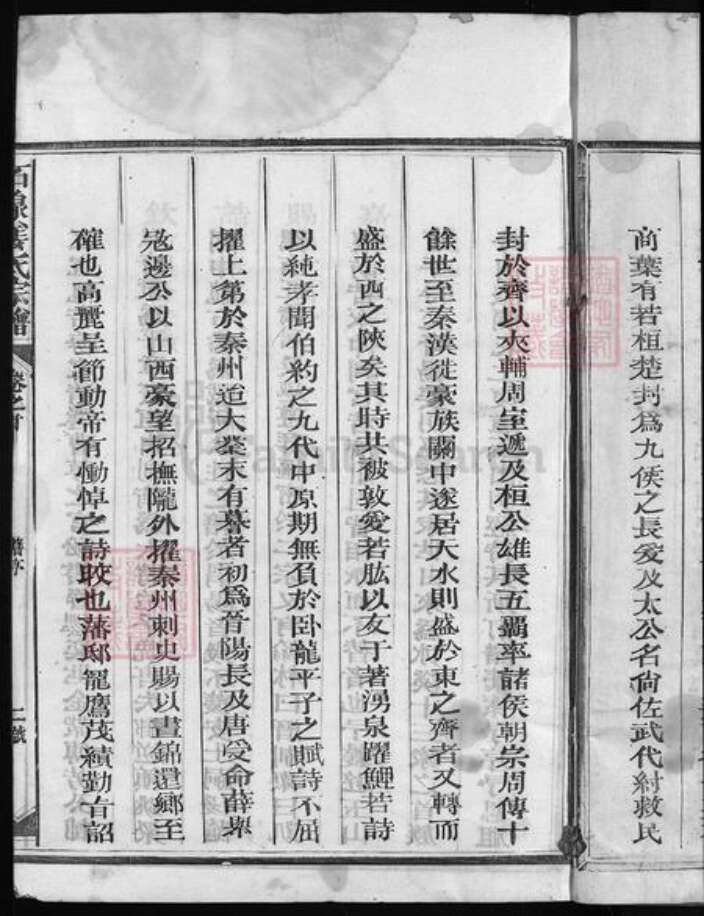 商葉有若桓楚封爲九侯之長爰及太公名尙佐武代紂救民
封於齊以夾輔周室遞及桓公雄長五霸率諸侯朝宗周傳十
餘世至秦漢徙豪族關中遂居天水則盛於東之齊者又轉而
盛於西之陝矣其時共被敦愛若肱以友于著湧泉躍鯉若詩
以純孝聞伯約之九代中原期無負於卧龍平子之賦詩不屈
擢上第於秦州迨大業末有暮者初爲晉陽長及唐受命薛舉
寇邊公以山西豪望招撫隴外擢秦州刺史賜以晝錦還鄉至
確也高麗呈節動帝有慟悼之詩晈也藩邸寵鷹茂績勤旨詔
姜氏宗譜
卷之首
舊序
二
FamilySearch